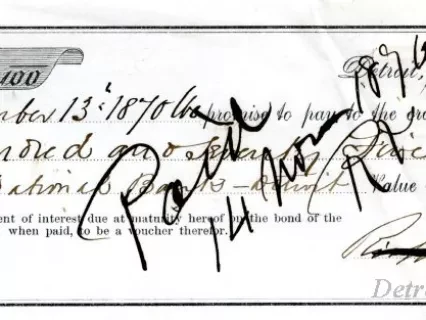 100
Detroit, 1870
ber 13th 1870 We promise to pay to the or
dred and Seventy Five
National Bank - Detroit Value
Paid
14 Nov
ent of interest due at maturity hereof on the bond of the
when paid, to be a voucher therefor.
Detro